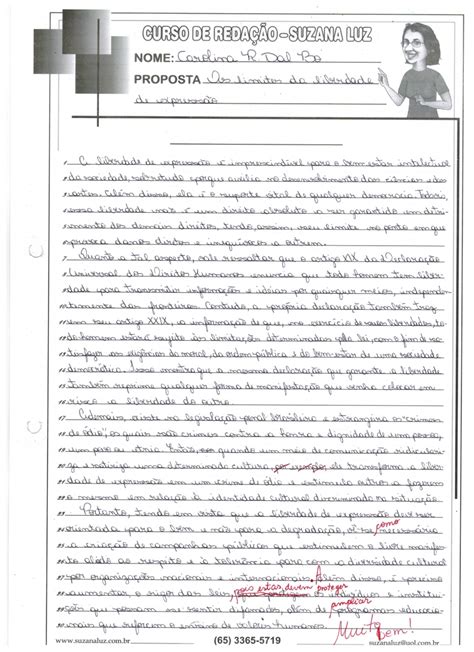 CURSO DE REDAÇÃO - SUZANA LUZ
NOME: Carolina R. Dal Bo
PROPOSTA Os limites da liberdade
de expressão
A liberdade de expressão é imprescindível para o bem estar intelectual
da sociedade, sobretudo porque auxilia no desenvolvimento das ciências e das
artes. Além disso, ela é o suporte vital de qualquer democracia. Todavia,
essa liberdade não é um direito absoluto a ser garantido em detri-
mento dos demais direitos, tendo, assim, seu limite no ponto em que
provoca danos diretos e inequívocos a outrem.
Quanto a tal aspecto, vale ressaltar que o artigo XIX da Declaração
Universal dos Direitos Humanos enuncia que todo homem tem liber-
dade para transmitir informações e ideias por quaisquer meios, independen-
temente das fronteiras. Contudo, a própria declaração também traz,
em seu artigo XXIX, a informação de que, no exercício de suas liberdades, to-
do homem estará sujeito às limitações determinadas pela lei, com o fim de sa-
tisfazer as exigências da moral, da ordem pública e do bem-estar de uma sociedade
democrática. Isso mostra que a mesma declaração que garante a liberdade
também reprime qualquer forma de manifestação que venha colocar em
risco a liberdade do outro.
Ademais, existe na legislação penal brasileira e estrangeira os "crimes
de ódio", os quais são crimes contra a honra e dignidade de uma pessoa,
um povo ou etnia. Então, quando um meio de comunicação ridiculari-
za e satiriza uma determinada cultura, ele transforma a liber-
dade de expressão em um crime de ódio e estimula outros a fazerem
o mesmo em relação à identidade cultural discriminada na situação.
Portanto, tendo em vista que a liberdade de expressão deve ser
orientada para o bem e não para a degradação, como necessária
a criação de campanhas públicas que estimulem o livre manifes-
to aliado ao respeito e à tolerância para com a diversidade cultural
por organizações nacionais e internacionais. Além disso, é preciso
aumentar o rigor das leis, pois estas devem proteger os indivíduos e institui-
ções que possam se sentir difamados, além de ampliar programas educacio-
nais que reforcem o ensino de valores humanos. Muito bem!
www.suzanaluz.com.br (65) 3365-5719 suzanaluz@uol.com.br